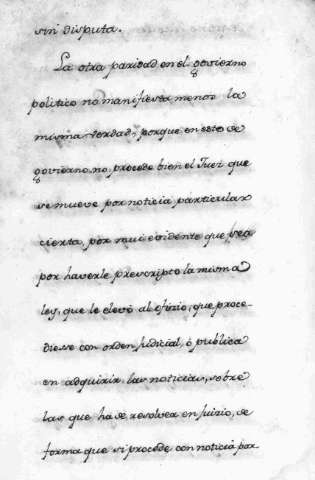 sin disputa.
La otra paridad en el govierno
politico no manifiesta menos la
misma verdad, porque en este se
govierno, no procede bien el Juez que
se mueve por noticia particular
cierta, por mui evidente que sea
por haverle prescripto la misma
ley, que le elevó al oficio, que proce-
diesse con orden judicial, ò publica
en adquirir las noticias, sobre
las que ha de resolver en juizio, de
forma que si procede con noticia par-